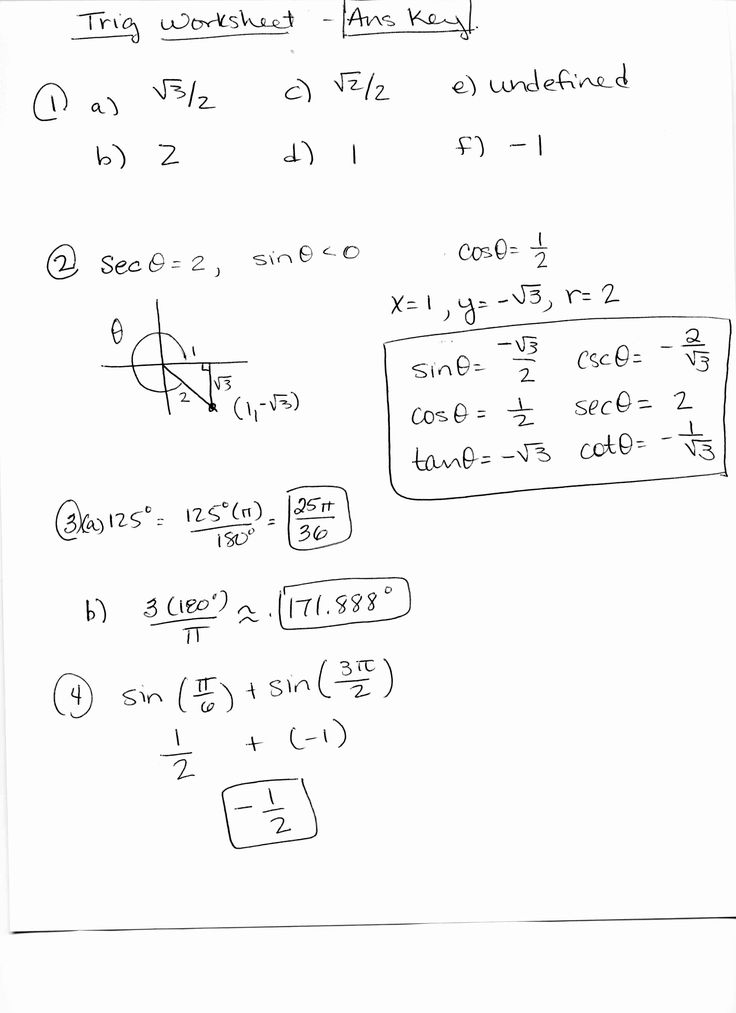 Trig Worksheet - Ans Key.
① a) √3/2 c) √2/2 e) undefined
b) 2 d) 1 f) -1
② sec θ = 2, sin θ < 0 cos θ = 1/2
x = 1, y = -√3, r = 2
θ 1 √3 2 (1, -√3)
sin θ = -√3/2 csc θ = -2/√3
cos θ = 1/2 sec θ = 2
tan θ = -√3 cot θ = -1/√3
③(a) 125° = 125°(π)/180° = 25π/36
b) 3(180°)/π ≈ 171.888°
④ sin(π/6) + sin(3π/2)
1/2 + (-1)
-1/2